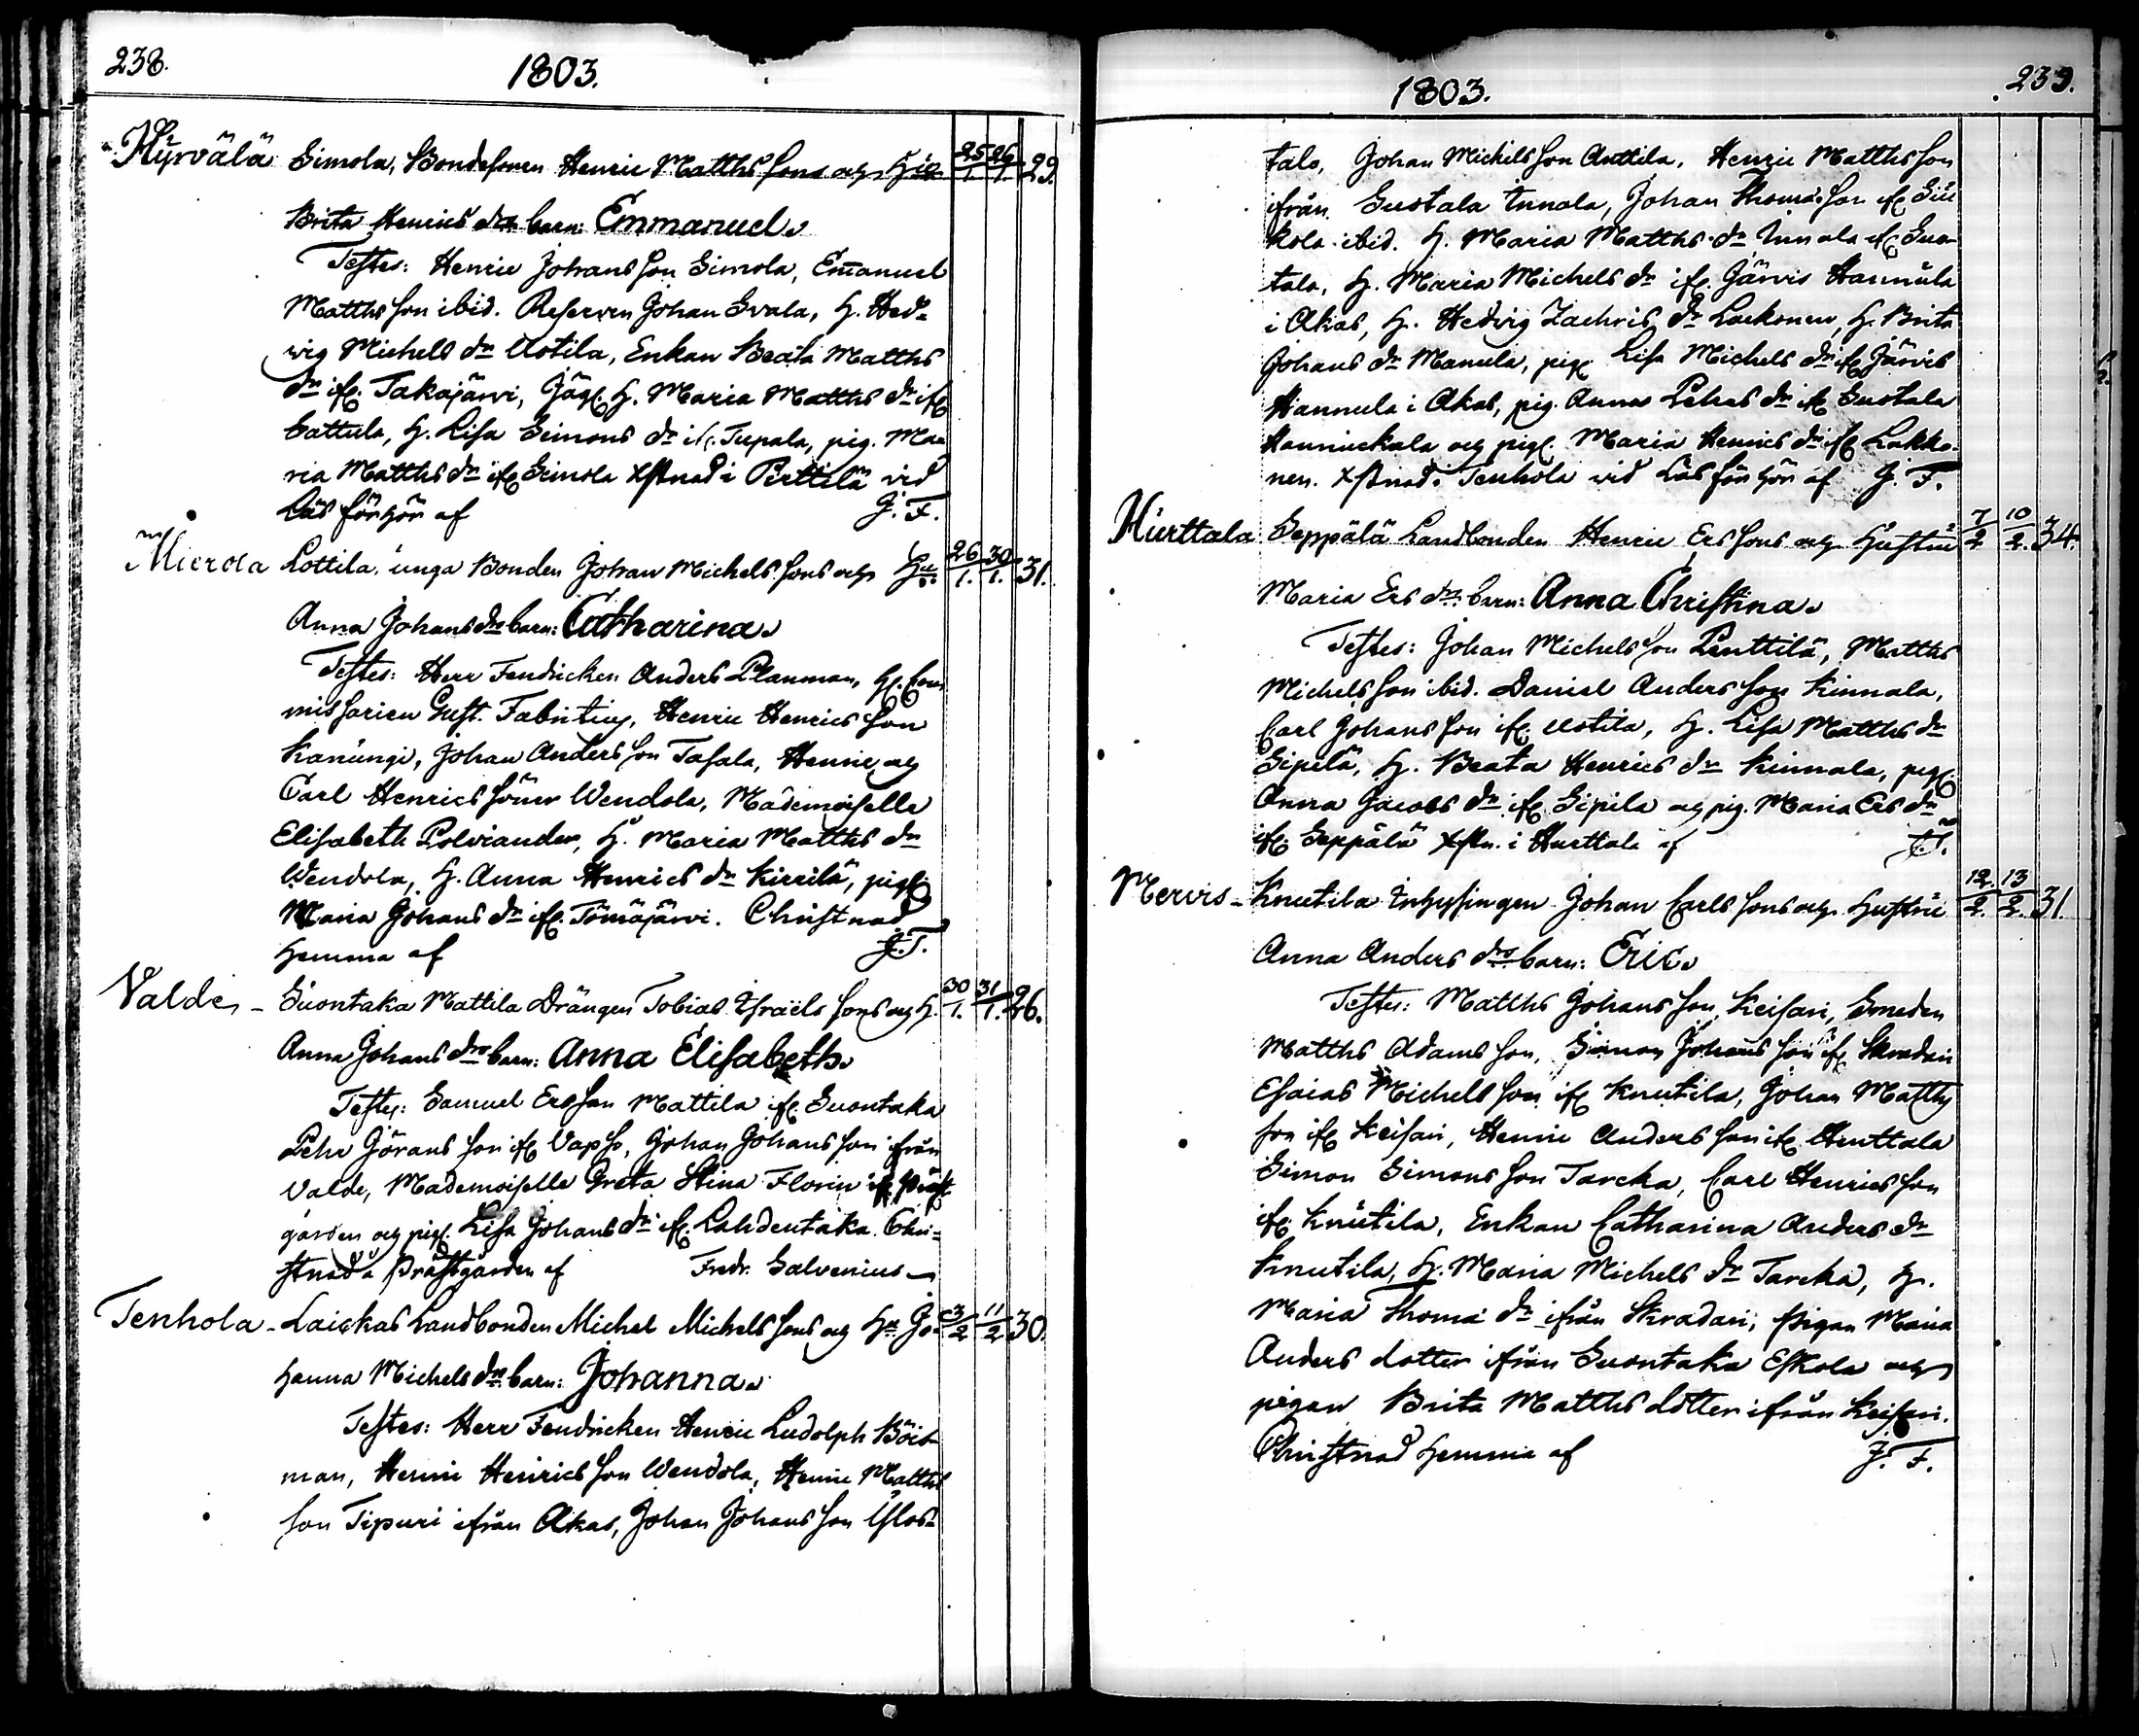 238.
1803.
Hyrvälä Simola, Bondesonen Henric Matths sons och H:us 25/1. 26/1. 29.
Brita Henrics drs barn: Emmanuel.
Testes: Henric Johans son Simola, Emanuel
Matths son ibid. Reserven Johan Svala, H. Hed-
wig Michels dr Uotila, Enkan Beata Matths
dr ifr. Takajärvi, Jäg. H. Maria Matths dr ifr
Sattula, H. Lisa Simons dr ifr. Tupala, pig. Ma-
ria Matths dr ifr Simola Xstnad i Perttilä vid
Läs förhör af J. F.
Mierola Lottila. unga Bonden Johan Michels sons och Hu 26/1. 30/1. 31.
Anna Johans drs barn: Catharina.
Testes: Herr Fendricken Anders Planman, H. Com
missarien Gust. Fabritius, Henric Henrics son
Kanungi, Johan Anders son Tasala, Henric och
Carl Henrics söner Wendola, Mademoiselle
Elisabeth Polviander, H. Maria Matths dr
Wendola, H. Anna Henrics dr Kirrilä, pig.
Maria Johans dr ifr. Tömäjärvi. Christnad
hemma af J. F.
Valde - Suontaka Mattila Drängen Tobias Israëls sons och H. 30/1. 31/1. 26.
Anna Johans drs barn: Anna Elisabeth.
Testes: Samuel Ersson Mattila ifr. Suontaka
Pehr Görans son ifr Vapso, Johan Johans son ifrån
Valde, Mademoiselle Greta Stina Florin ifr Präst
gården och pig. Lisa Johans dr ifr. Lahdentaka. Chri-
stnad å Prästgården af Fredr. Salvenius
Tenhola - Laickas Landbonden Michel Michels sons och Hu Jo- 3/2 11/2 30.
hanna Michels drs barn: Johanna.
Testes: Herr Fendricken Henric Ludolph Böis
man, Henric Henrics son Wendola, Henric Matths
son Tipuri ifrån Akas, Johan Johans son Ylös-
1803.
239.
talo, Johan Michels son Anttila, Henric Matths son
ifrån Suotala Innala, Johan Thomæ son ifr Siu
kola ibid. H. Maria Matths dr Innala ifr Suo-
tala, H. Maria Michels dr ifr. Järvis Hannula
i Akas, H. Hedvig Zachris dr Lackonen, H. Brita
Johans dr Manula, pig. Lisa Michels dr ifr Järvis
Hannula i Akas, pig. Anna Pehrs dr ifr Suotala
Hanniuckala och pig. Maria Henrics dr ifr Lakko-
nen. Xstnad i Tenhola vid Läs förhör af J. F.
Hurttala Seppälä Landbonden Henric Ers sons och Hustru 7/2 10/2. 34.
Maria Ers drs barn: Anna Christina.
Testes: Johan Michels son Penttilä, Matths
Michels son ibid. Daniel Anders son Kinnala,
Carl Johans son ifr. Uotila, H. Lisa Matths dr
Sipilä, H. Beata Henrics dr Kinnala, pig.
Anna Jacobs dr ifr. Sipila och pig. Maria Ers dr
ifr. Seppälä Xstn. i Hurttala af J. F.
Mervis - Knutila Inhysingen Johan Carls sons och Hustru 12/2. 13/2. 31.
Anna Anders drs barn: Eric.
Testes: Matths Johans son Keisari, Smeden
Matths Adams son, Simon Johans son ifr Skradari
Esaias Michels son ifr Knutila, Johan Matths
son ifr Keisari, Henric Anders son ifr Hurttala
Simon Simons son Tarcka, Carl Henrics son
ifr. Knutila, Enkan Catharina Anders dr
Knutila, H. Maria Michels dr Tarcka, H.
Maria Thomæ dr ifrån Skradari, pigan Maria
Anders dotter ifrån Suontaka Eskola och
pigan Brita Matths dotter ifrån Keisari.
Christnad hemma af J. F.